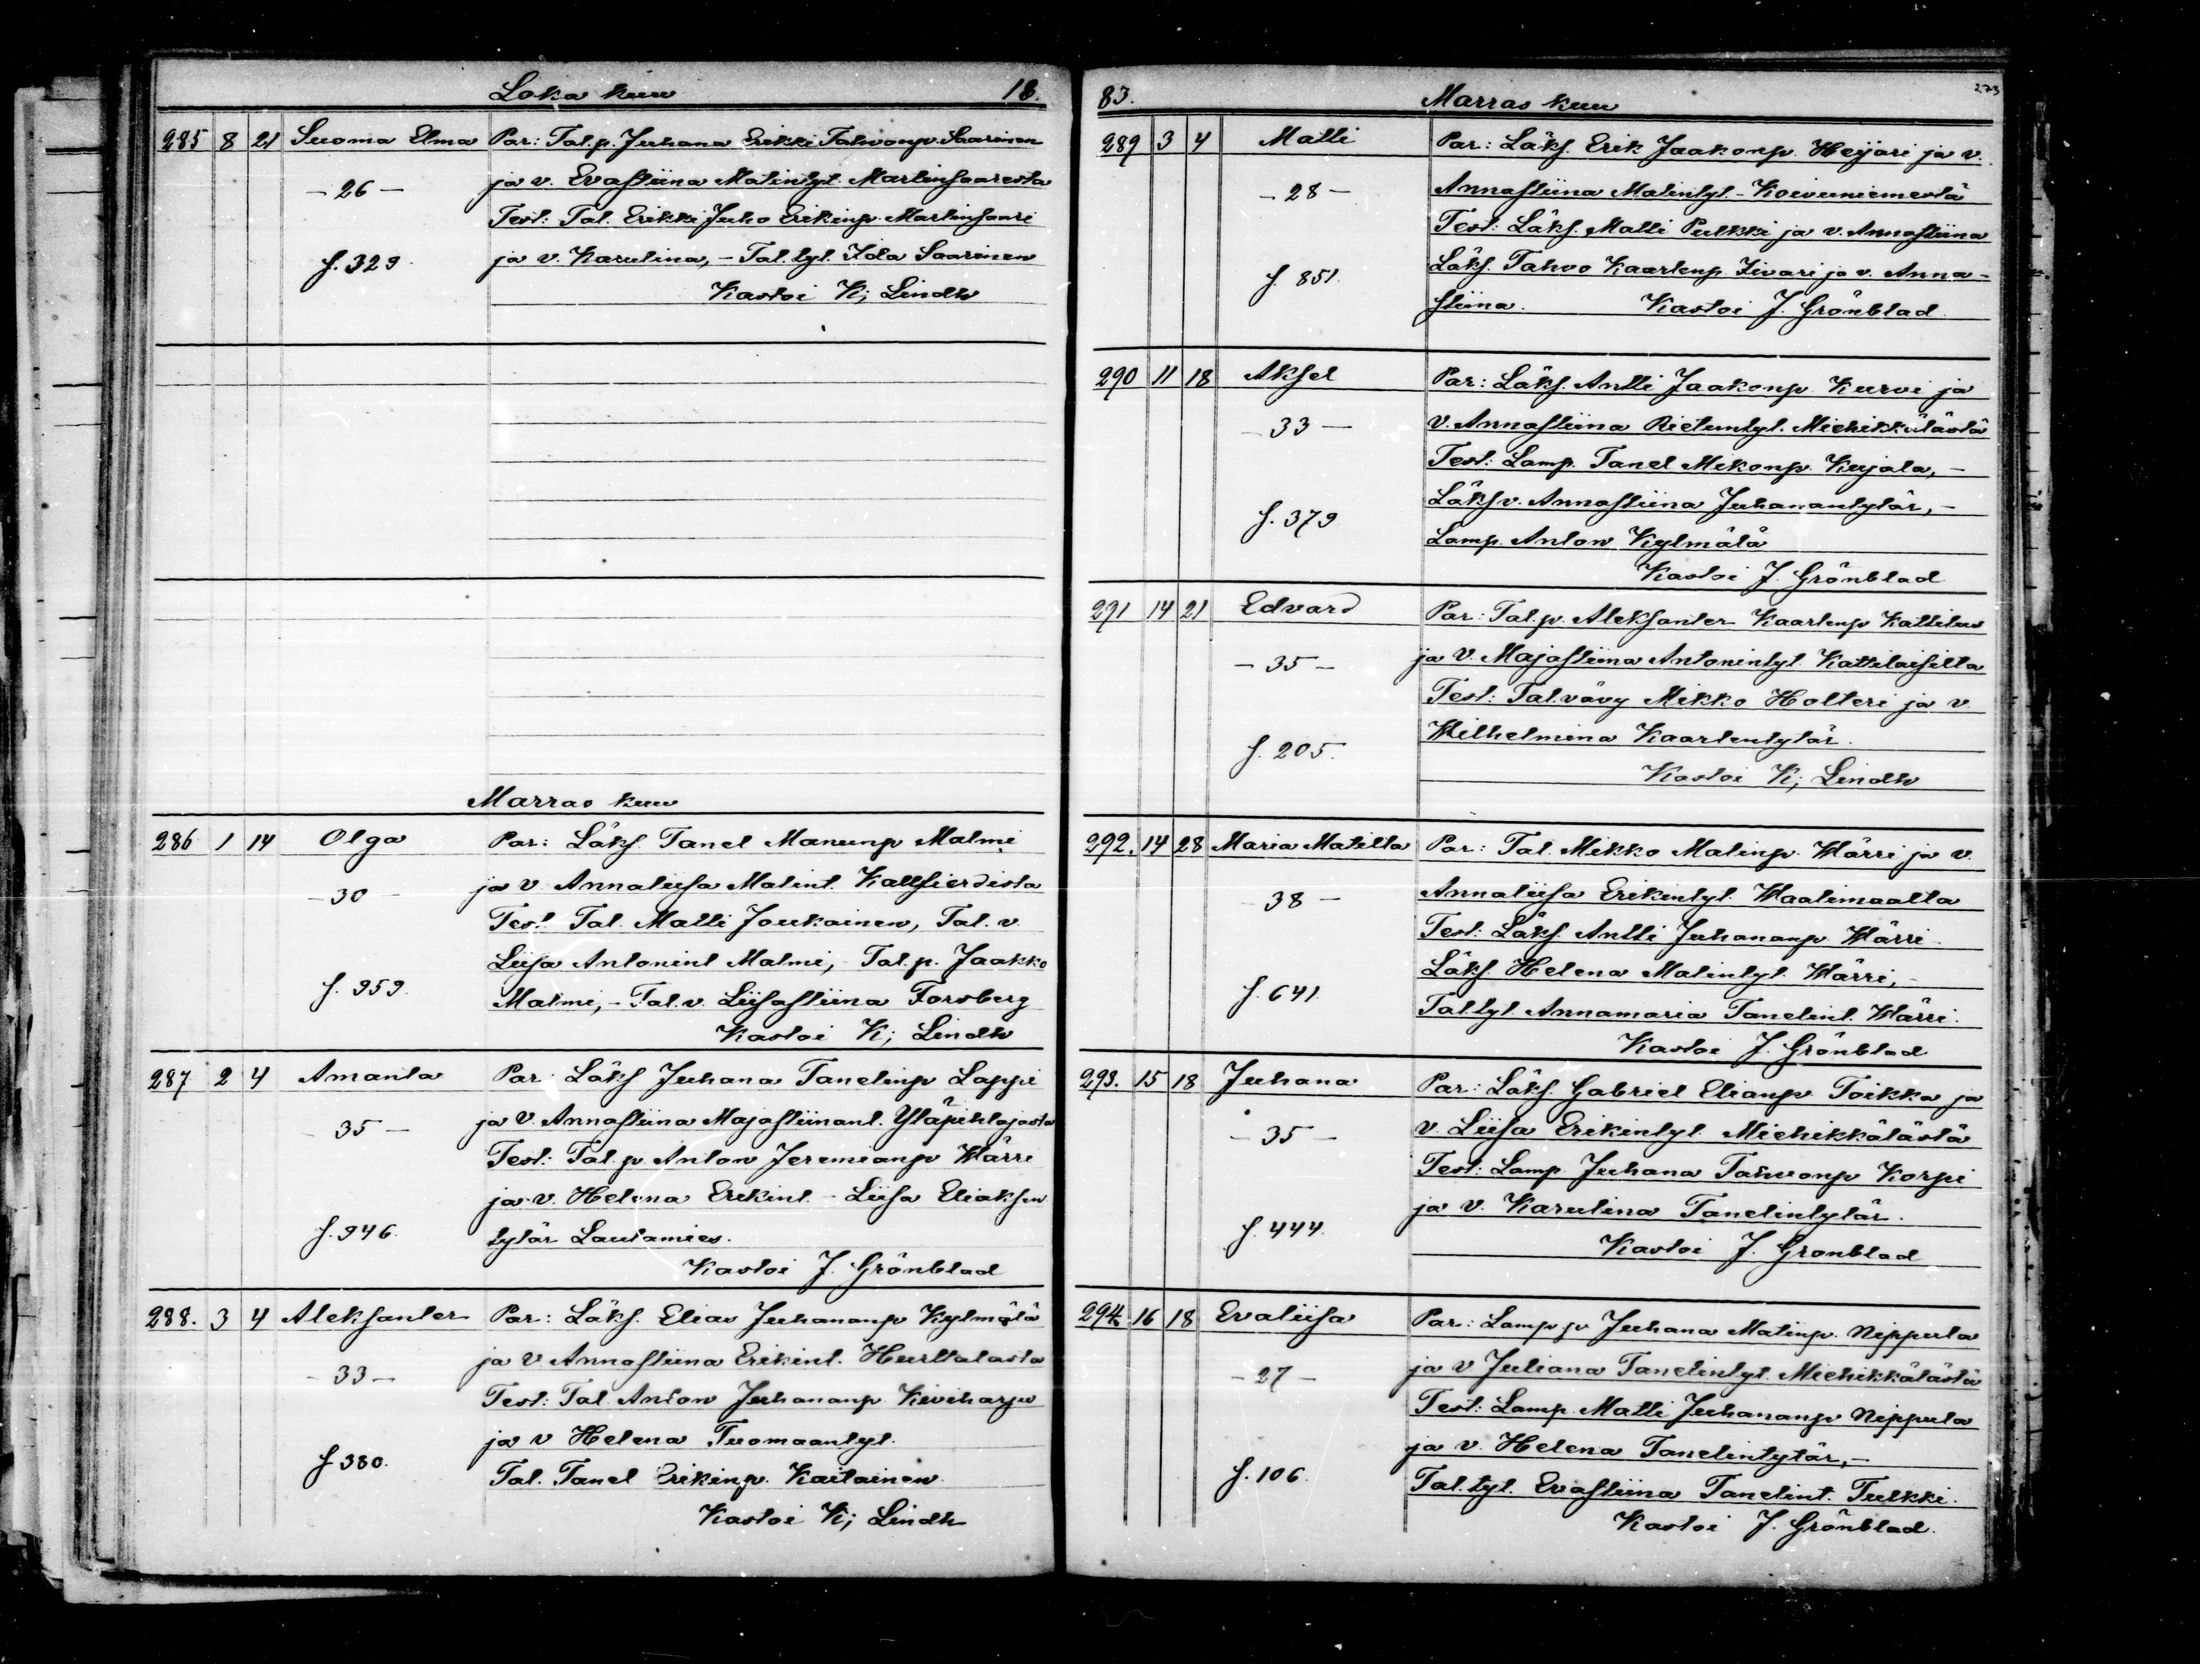 Loka kuu 18.
285 8 21 Suoma Elma Par: Tal.p. Juhana Erikki Tahvonp. Saarinen
- 26 - ja v. Evastiina Matintyt. Martinsaaresta
Test: Tal. Erikki Juho Erikinp. Martinsaari
f. 329. ja v. Karulina, - Tal. tyt. Ida Saarinen
Kastoi K; Lindh
Marras kuu
286 1 14 Olga Par: Läks. Tanel Manunp Malmi
- 30 - ja v. Annaliisa Matint.
Test. Tal. Matti Joukainen, Tal. v.
Liisa Antonint Malmi, - Tal. p. Jaakko
f. 959. Malmi, - Tal. v. Liisastiina Forsberg
Kastoi K; Lindh
287 2 4 Amanta Par: Läks Juhana Tanelinp Lappi
- 35 - ja v. Annastiina Majastiinant. Yläpihlajasta
Test: Tal. p. Anton Jeremianp Wärri
ja v. Helena Erikint. - Liisa Eliaksen
f. 946. tytär Lautamies.
Kastoi J. Grönblad
288. 3 4 Aleksanter Par: Läks. Elias Juhananp Kylmälä
- 33 - ja v Annastiina Erikint. Hurttalasta
Test: Tal Anton Juhananp Kiviharju
ja v Helena Tuomaantyt.
f 380. Tal. Tanel Erikinp. Kaitainen
Kastoi K; Lindh
83. Marras kuu 273
289 3 4 Matti Par: Läks. Erik Jaakonp. Heijari ja v.
- 28 - Annastiina Matintyt. - Koivuniemestä
Test: Läks. Matti Pulkki ja v. Annastiina
f. 851. Läks. Tahvo Kaarlenp. Iivari ja v. Anna-
stiina. Kastoi J. Grönblad
290 11 18 Aksel Par: Läks. Antti Jaakonp. Kurvi ja
- 33 - v. Annastiina Rietuntyt. Miehikkälästä
Test: Lamp. Tanel Mikonp. Kujala, -
f. 379 Läks v. Annastiina Juhanantytär, -
Lamp. Anton Kylmälä
Kastoi J. Grönblad
291 14 21 Edvard Par: Tal. p. Aleksanter Kaarlenp Kattilus
- 35 - ja v. Majastiina Antonintyt Kattilaisilta
Test: Tal. vävy Mikko Holteri ja v.
f. 205. Wilhelmina Kaarlentytär.
Kastoi K; Lindh
292. 14 28 Maria Matilta Par: Tal. Mikko Matinp. Wärri ja v.
- 38 - Annaliisa Erikintyt. Waalimaalta
Test: Läks. Antti Juhananp Wärri
f. 641. Läks. Helena Matintyt. Wärri, -
Tal tyt. Annamaria Tanelint. Wärri.
Kastoi J. Grönblad
293. 15 18 Juhana Par: Läks. Gabriel Elianp Toikka ja
- 35 - v. Liisa Erikintyt. Miehikkälästä
Test: Lamp. Juhana Tahvonp Korpi
f. 444. ja v. Karulina Tanelintytär.
Kastoi J. Grönblad
294 16 18 Evaliisa Par: Lamp. p. Juhana Matinp. Nippula
- 27 - ja v Juliana Tanelintyt. Miehikkälästä
Test: Lamp. Matti Juhananp Nippula
ja v. Helena Tanelintytär, -
f. 106. Tal. tyt. Evastiina Tanelint. Tulkki.
Kastoi J. Grönblad.